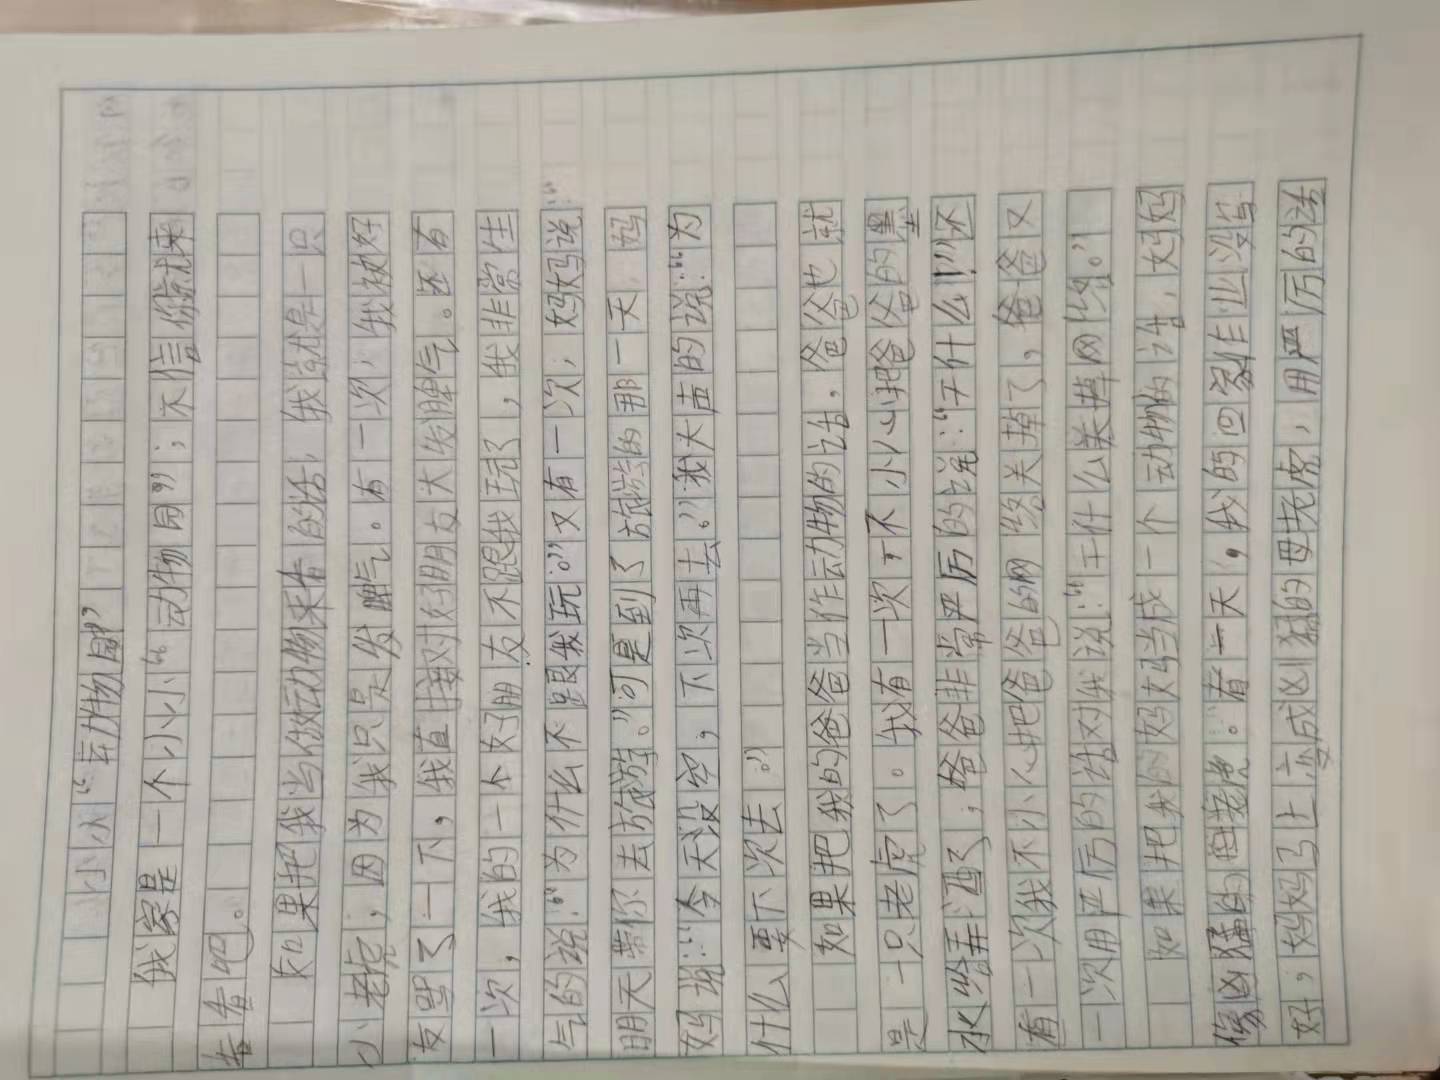 小小“动物园”
我家是一个小小“动物园”；不信你就来
看看吧。
如果把我当做动物来看的话，我就是一只
小老虎，因为我只是发脾气。有一次，我被好
友骂了一下，我直接对好朋友大发脾气。还有
一次，我的一个好朋友不跟我玩了，我非常生
气的说：“为什么不跟我玩。”又有一次，妈妈说：“
明天带你去旅游。”可是到了旅游的那一天，妈
妈说：“今天没空，下次再去。”我大声的说：“为
什么要下次去。”
如果把我的爸爸当作动物的话，爸爸也就
是一只老虎了。我有一次不小心把爸爸的墨
水给弄洒了，爸爸非常严厉的说：“干什么！”还
有一次我不小心把爸爸的网络关掉了，爸爸又
一次用严厉的话对我说：“干什么关掉网络。”
如果把我的妈妈当成一个动物的话，妈妈
像凶猛的母老虎。有一天，我的回家作业没写
好，妈妈马上变成凶猛的母老虎，用严厉的话